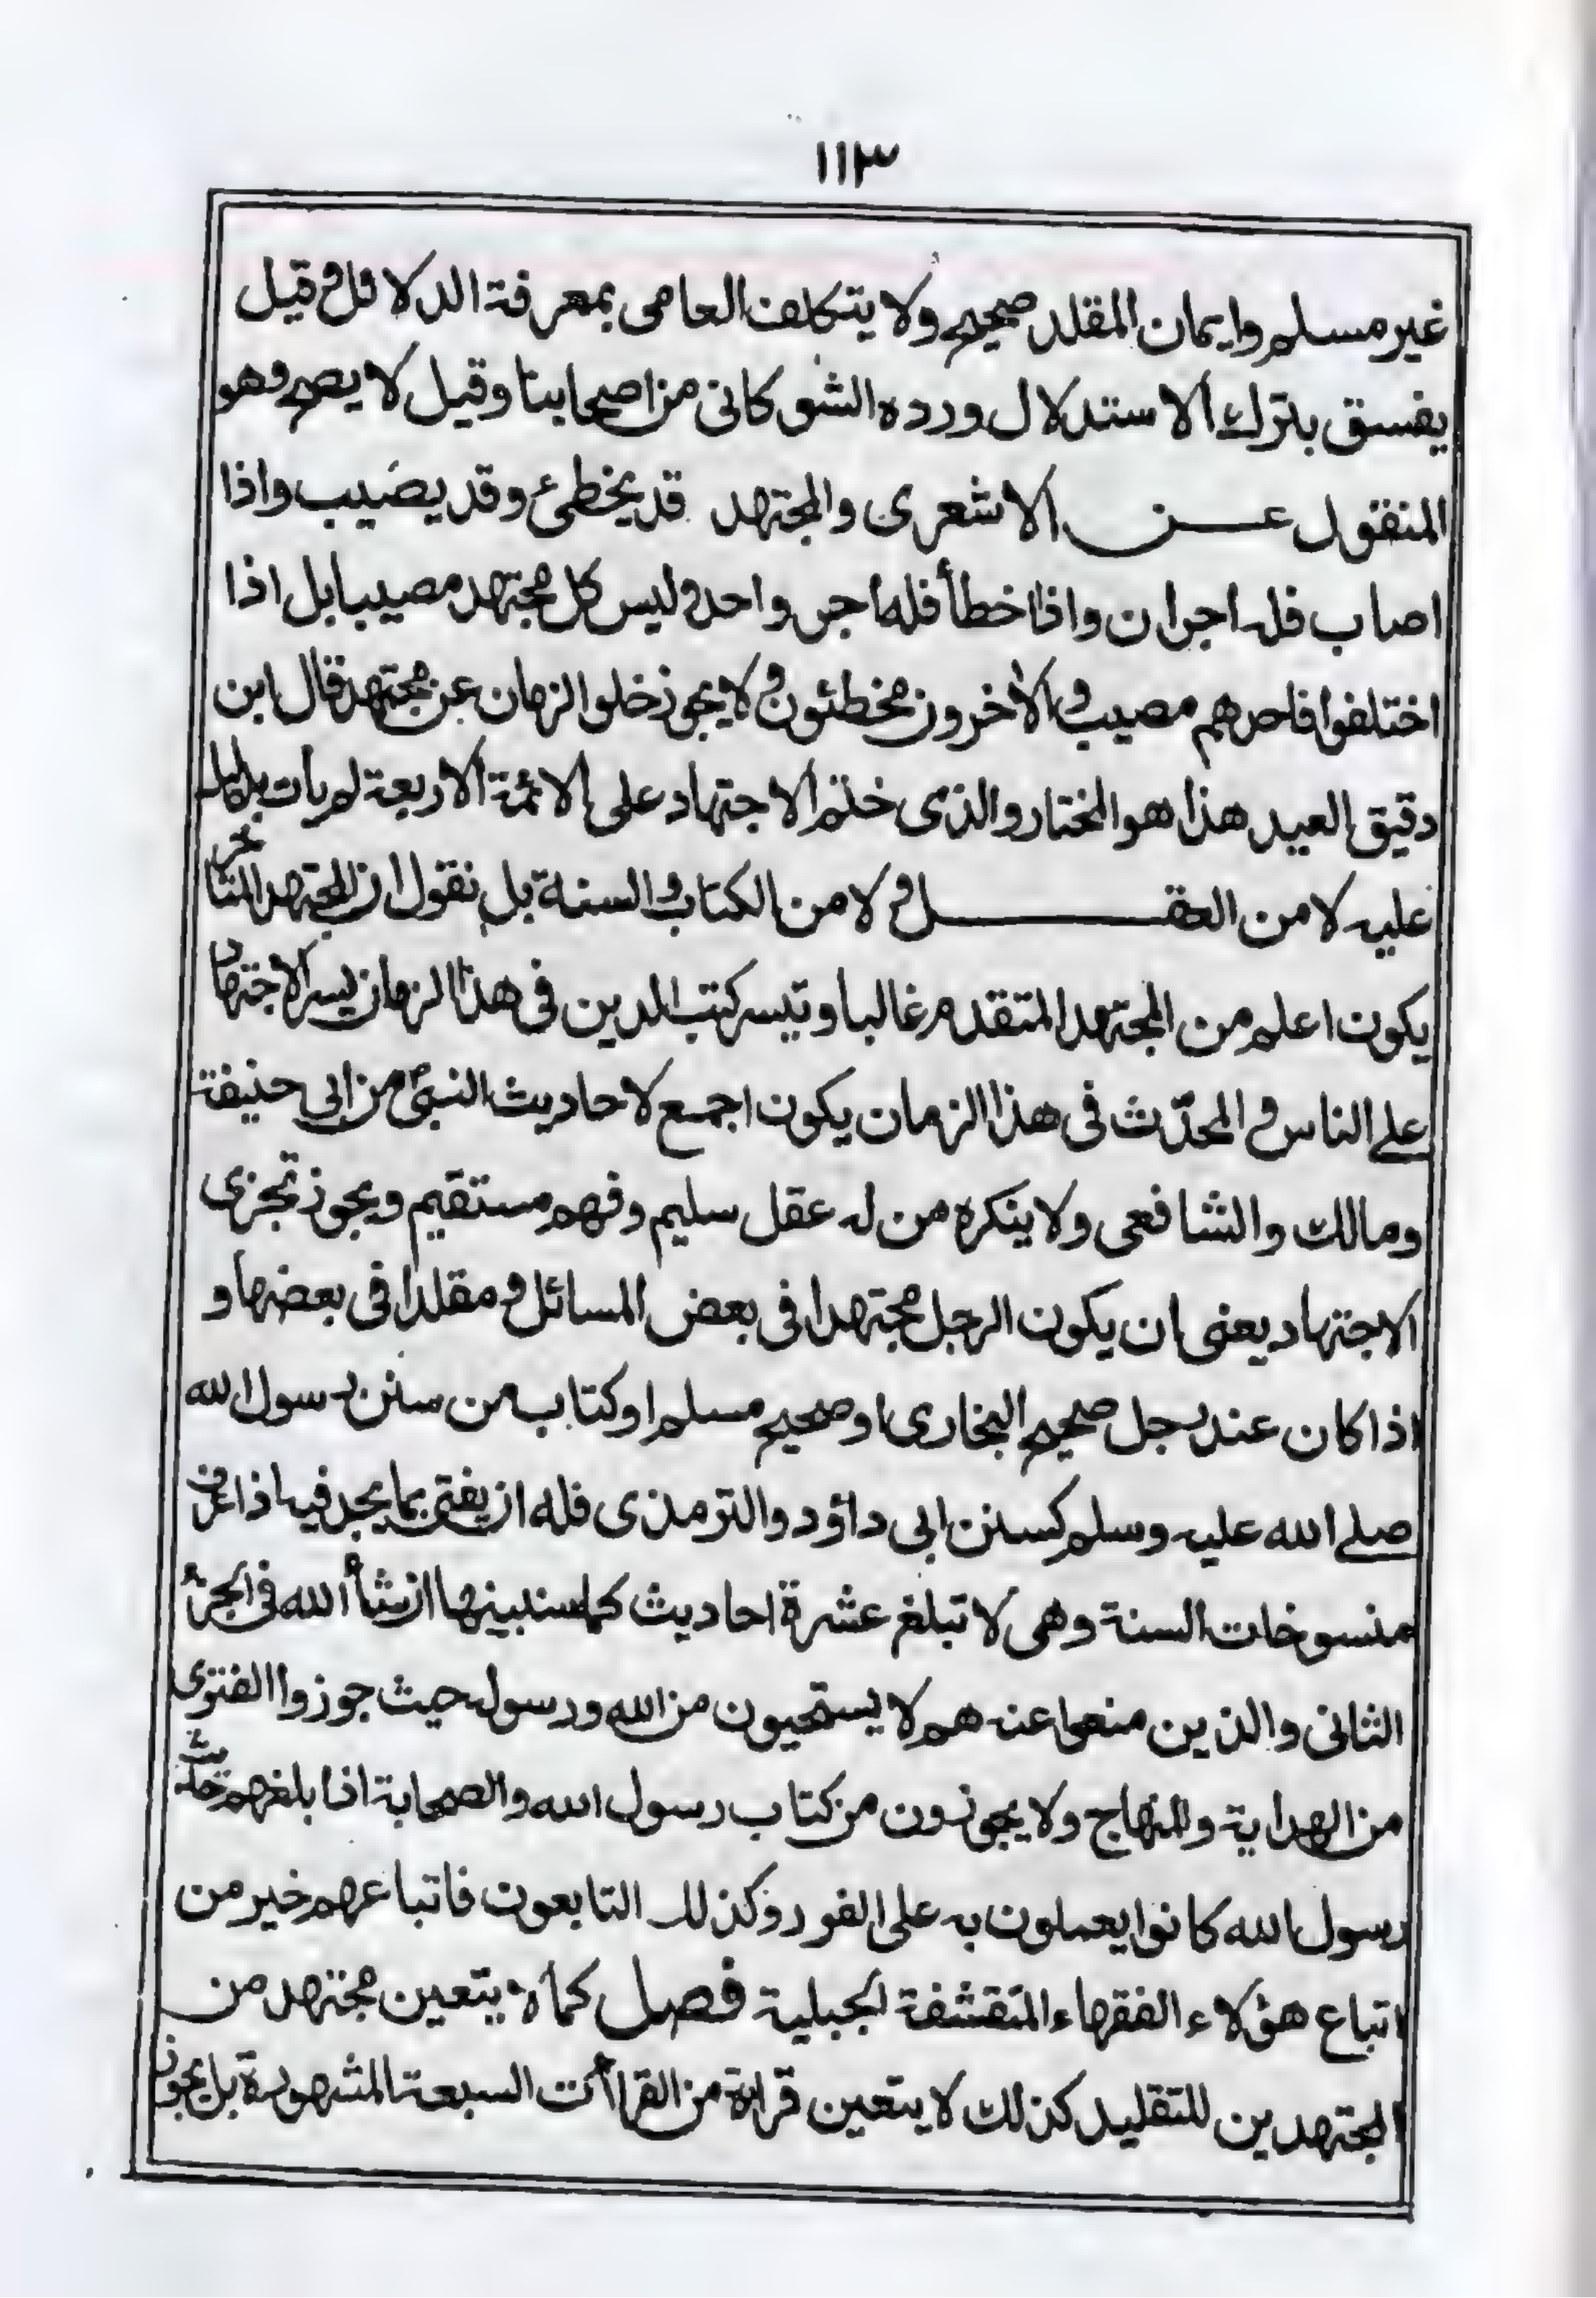 ١١٣
غير مسلم وايمان المقلد صحيح ولا يتكلف العامى بمعرفة الدلائل وقيل
يفسق بترك الاستدلال ورده الشوكانى من اصحابنا وقيل لا يصح وهو
المنقول عن الاشعرى والمجتهد قد يخطئ وقد يصيب واذا
اصاب فله اجران واذا اخطأ فله اجر واحد وليس كل مجتهد مصيبا بل اذا
اختلفوا فاحدهم مصيب والأخرون مخطئون ولا يجوز خلو الزمان عن مجتهد قال ابن
دقيق العيد هذا هو المختار والذى ختم الاجتهاد على الائمة الاربعة لم يأت بدليل
عليه لا من العقل ولا من الكتاب والسنة بل نقول ان المجتهد المتأخر
يكون اعلم من المجتهد المتقدم غالبا وتيسر كتب الدين فى هذا الزمان يسر الاجتهاد
على الناس والمحدّث فى هذا الزمان يكون اجمع لاحاديث النبىؐ من ابى حنيفة
ومالك والشافعى ولا ينكره من له عقل سليم وفهم مستقيم ويجوز تجزى
الاجتهاد يعنى ان يكون الرجل مجتهدا فى بعض المسائل ومقلدا فى بعضها و
اذا كان عند رجل صحيح البخارى او صحيح مسلم او كتاب من سنن رسول الله
صلے الله عليه وسلم كسنن ابى داؤد والترمذى فله ان يفتى بما يجد فيه اذا عرف
منسوخات السنة وهى لا تبلغ عشرة احاديث كما سنبينها ان شأ الله فى الجزء
الثانى والذين منعوا عنه هم لا يستحيون من الله ورسوله حيث جوزوا الفتوى
من الهداية والمنهاج ولا يجوزون من كتاب رسول الله والصحابة اذا بلغهم حديث
رسول الله كانوا يعملون به على الفور وكذلك التابعون فاتباعهم خير من
اتباع هؤلاء الفقهاء المتقشفة الجبلية فصل كما لا يتعين مجتهد من
المجتهدين للتقليد كذلك لا يتعين قراءة من القراأت السبعة المشهورة بل يجوز